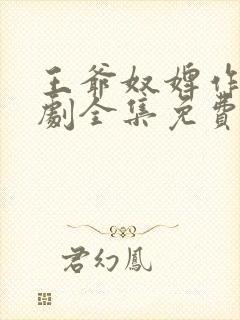 王爺奴婢作
劇全集免費
君幻鳳